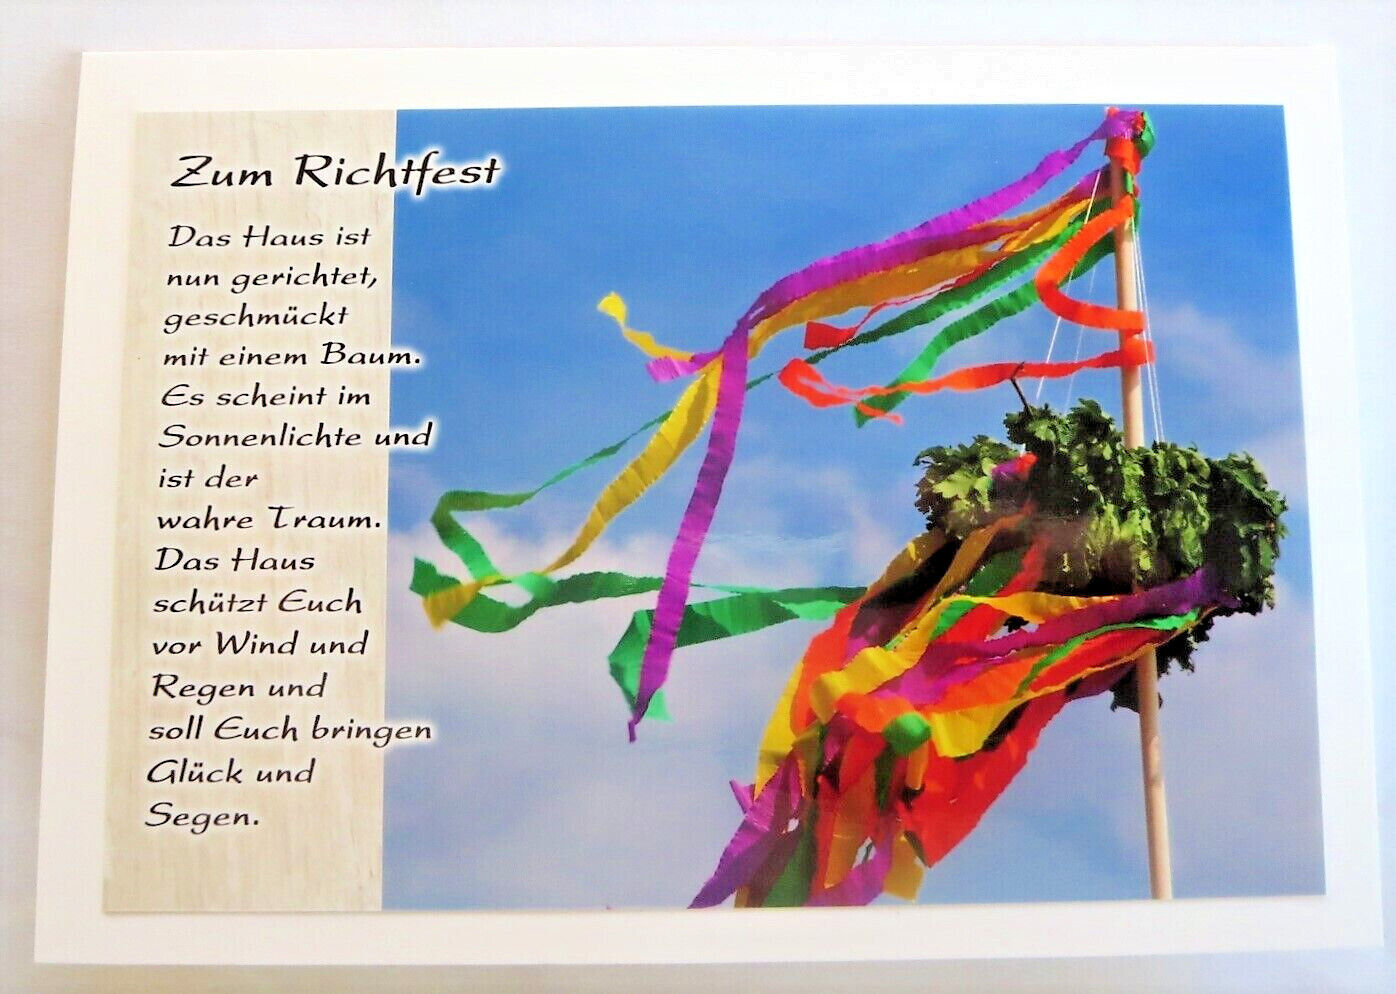 Zum Richtfest
Das Haus ist
nun gerichtet,
geschmückt
mit einem Baum.
Es scheint im
Sonnenlichte und
ist der
wahre Traum.
Das Haus
schützt Euch
vor Wind und
Regen und
soll Euch bringen
Glück und
Segen.